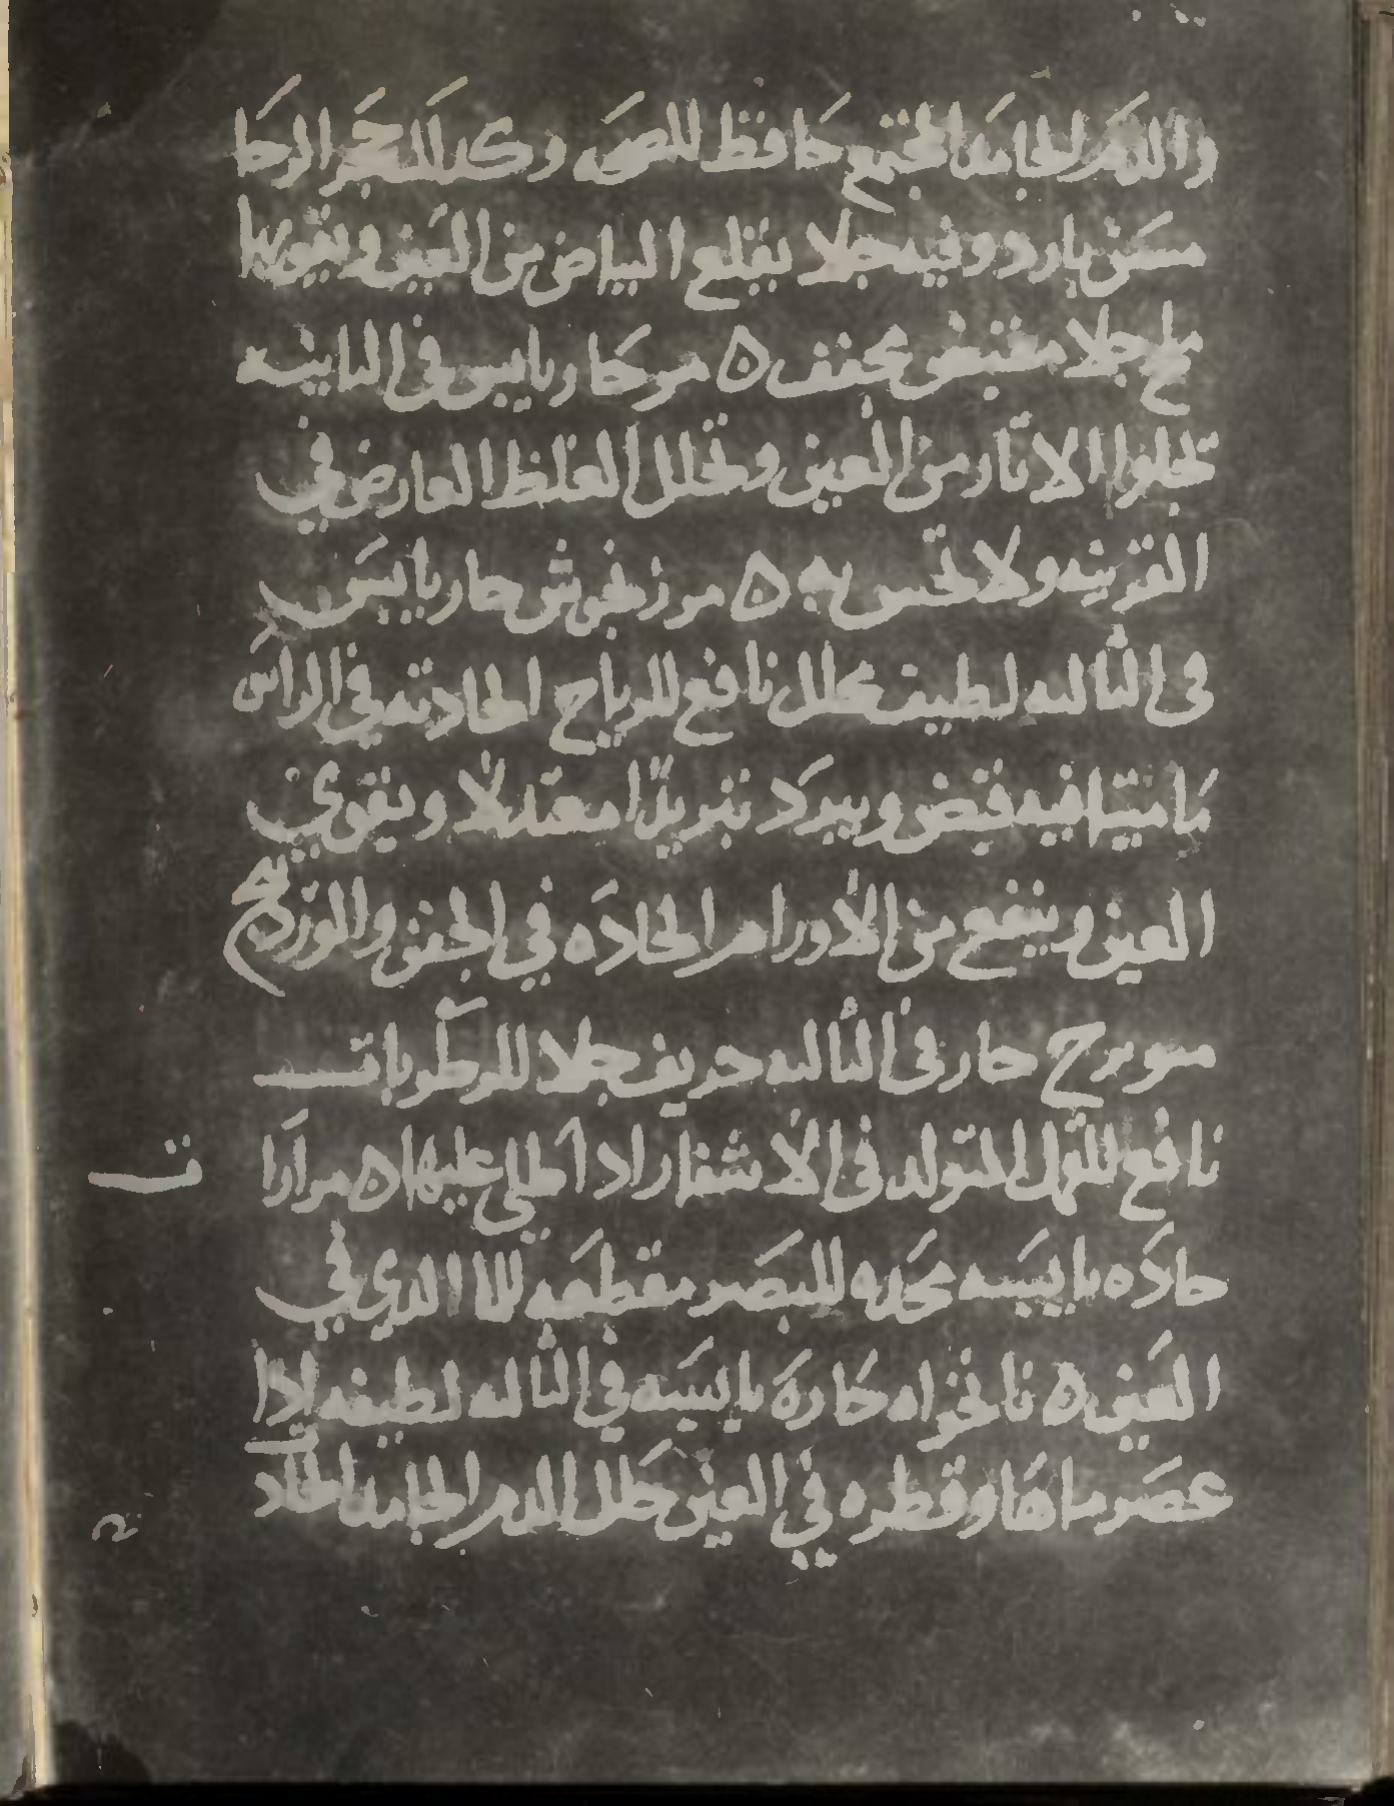 والدم الجامد المجتمع حافظ للصحه وكدلك حجر الرحا
مسن بارد وفيه جلا يقلع البياض من العين ويقويها
ملح جلا مقبض مجفف ٥ مر حار يابس في الثانيه
تجلوا الاثار من العين وتحلل الغلظ العارض في
القرنيه ولا تحس به ٥ مرزنجوش حار يابس
في الثالثه لطيف محلل نافع للرياح الحادثه في الراس
ماميثا فيه قبض ويبرد تبريدًا معتدلًا ويقوي
العين وينفع من الأورام الحاده في الجفن والوردينج
ميويزج حار في الثالثه حريف جلا للرطوبات
نافع للقمل المتولد في الأشفار ادا طلي عليها ٥ مرارا
ت
حاده يابسه محده للبصر مقطعه للما الدي في
العين ٥ نانخواه حاره يابسه في الثالثه لطيفه إدا
عصر ماها وقطره في العين حلل الدم الجامد الحاد